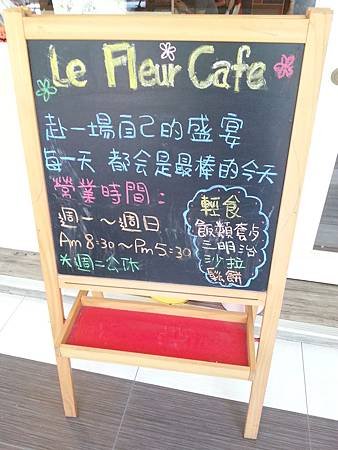 Le Fleur Cafe
赴一場自己的盛宴
每一天 都会是最棒的今天
營業時間：
週一～週日
Am 8:30～Pm 5:30
*週二公休
輕食
飯類套餐
三明治
沙拉
鬆餅